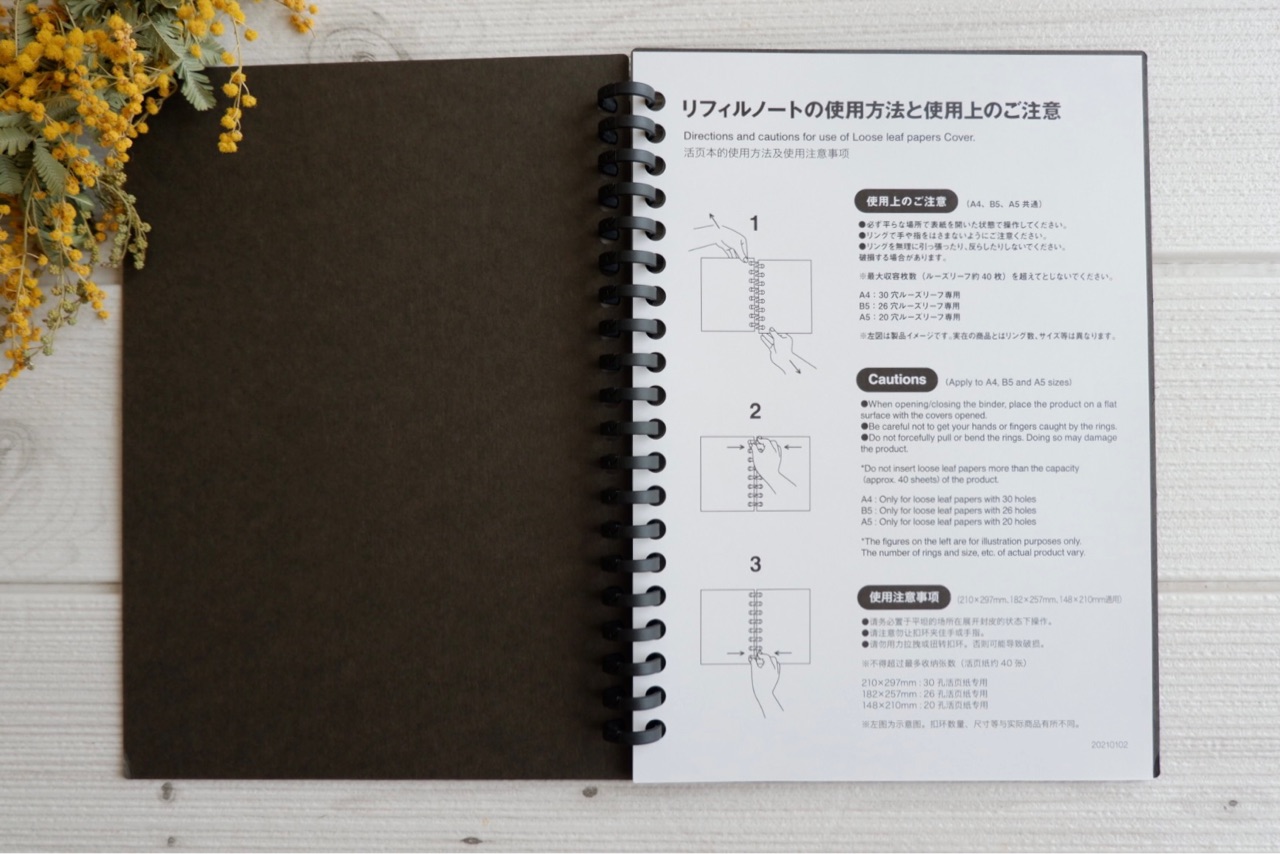 リフィルノートの使用方法と使用上のご注意
Directions and cautions for use of Loose leaf papers Cover.
活页本的使用方法及使用注意事项
1
2
3
使用上のご注意 （A4、B5、A5 共通）
●必ず平らな場所で表紙を開いた状態で操作してください。
●リングで手や指をはさまないようにご注意ください。
●リングを無理に引っ張ったり、反らしたりしないでください。
破損する場合があります。
※最大収容枚数（ルーズリーフ約 40 枚）を超えてとじないでください。
A4：30 穴ルーズリーフ専用
B5：26 穴ルーズリーフ専用
A5：20 穴ルーズリーフ専用
※左図は製品イメージです。実在の商品とはリング数、サイズ等は異なります。
Cautions (Apply to A4, B5 and A5 sizes)
●When opening/closing the binder, place the product on a flat
surface with the covers opened.
●Be careful not to get your hands or fingers caught by the rings.
●Do not forcefully pull or bend the rings. Doing so may damage
the product.
*Do not insert loose leaf papers more than the capacity
(approx. 40 sheets) of the product.
A4 : Only for loose leaf papers with 30 holes
B5 : Only for loose leaf papers with 26 holes
A5 : Only for loose leaf papers with 20 holes
*The figures on the left are for illustration purposes only.
The number of rings and size, etc. of actual product vary.
使用注意事项 （210×297mm、182×257mm、148×210mm通用）
●请务必置于平坦的场所在展开封皮的状态下操作。
●请注意勿让扣环夹住手或手指。
●请勿用力拉拽或扭转扣环。否则可能导致破损。
※不得超过最多收纳张数（活页纸约 40 张）
210×297mm : 30 孔活页纸专用
182×257mm : 26 孔活页纸专用
148×210mm : 20 孔活页纸专用
※左图为示意图。扣环数量、尺寸等与实际商品有所不同。
20210102